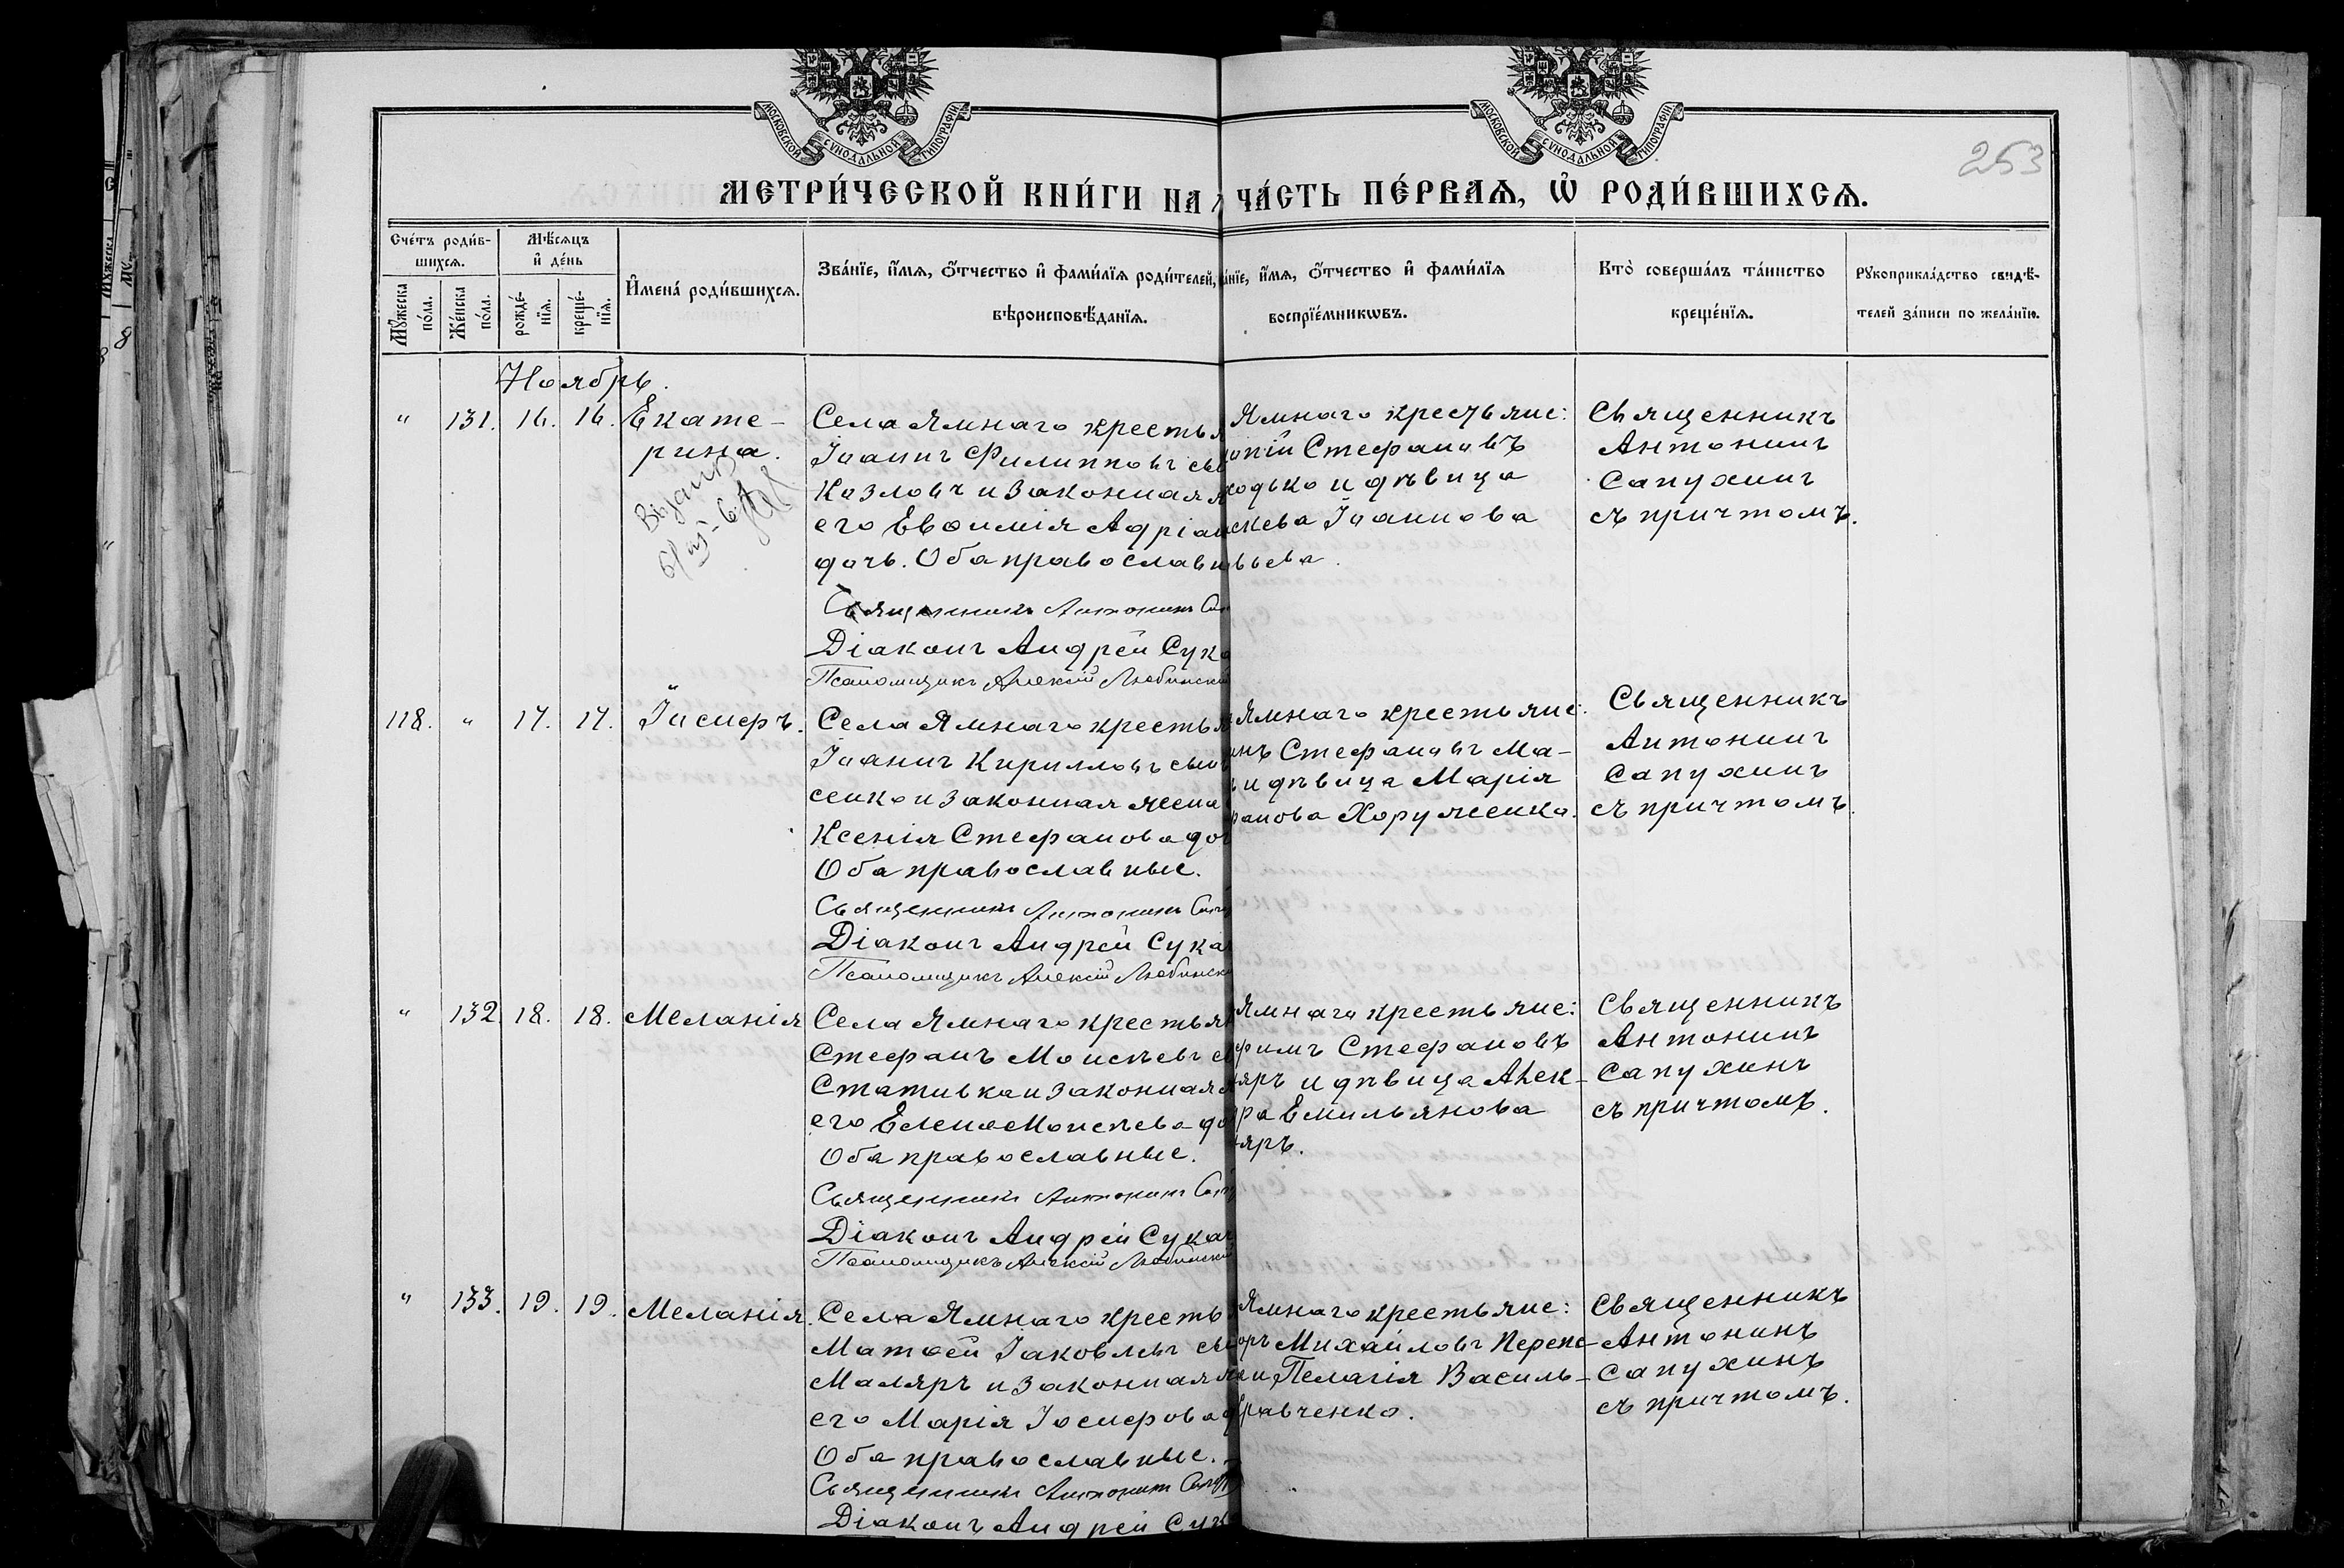 МОСКОВСКОЙ СѴНОДАЛЬНОЙ ТИПОГРАФІИ
МОСКОВСКОЙ СѴНОДАЛЬНОЙ ТИПОГРАФІИ
253
МЕТРИ́ЧЕСКОЙ КНИ́ГИ НА
ЧА́СТЬ ПЕ́РВАѦ, Ѡ҆ РОДИ́ВШИХСѦ.
Сче́тъ роди́в-
шихсѧ.
Мѣ́сѧцъ
и҆ де́нь
Мꙋ́жеска
по́ла.
Же́нска
по́ла.
рожде́-
нїѧ.
креще́-
нїѧ.
И҆мена́ роди́вшихсѧ.
Зва́нїе, и҆́мѧ, ѻ҆́тчество и҆ фами́лїѧ роди́телей,
вѣроисповѣ́данїѧ.
а́нїе, и҆́мѧ, ѻ҆́тчество и҆ фами́лїѧ
воспрїе́мникѡвъ.
Кто̀ соверша́лъ та́инство
креще́нїѧ.
Рꙋкоприкла́дство свидѣ́-
телей за́писи по жела́нїю.
Ноябрь.
" 131. 16. 16. Екате-
рина.
Села Ямнаго крестья
Іоаннъ Филипповъ сы
Козловъ и законная
его Евѳимія Адріан
дочь. Оба православн
Священникъ Антонинъ
Діаконъ Андрей Сука
Псаломщикъ Алексій Любински
Ямнаго крестьяне:
Стефановъ
одько и дѣвица
скева Іоаннова
ьева.
Священникъ
Антонинъ
Сапухинъ
съ причтомъ.
118. " 17. 17. Іосифъ.
Села Ямнаго крестья
Іоаннъ Кирилловъ сын
сенко и законная жена
Ксенія Стефанова доч
Оба православные.
Священникъ Антонинъ
Діаконъ Андрей Сука
Псаломщикъ Алексій Любински
Ямнаго крестьяне:
инъ Стефановъ Ма-
ъ и дѣвица Марія
фанова Хоруженка.
Священникъ
Антонинъ
Сапухинъ
съ причтомъ.
" 132. 18. 18. Меланія
Села Ямнаго крестья
Стефанъ Моисѣевъ с
Стативка и законная
его Елена Моисѣева до
Оба православные.
Священникъ Антонинъ
Діаконъ Андрей Сука
Псаломщикъ Алексій Любински
Ямнаго крестьяне:
фимъ Стефановъ
яръ и дѣвица Алек-
ра Емильянова
яръ.
Священникъ
Антонинъ
Сапухинъ
съ причтомъ.
" 133. 19. 19. Меланія.
Села Ямнаго кресть
Матѳей Іаковлевъ сы
Маляръ и законная
его Марія Іосифова
Оба православные.
Священникъ Антонинъ
Діаконъ Андрей Сук
Ямнаго крестьяне:
оръ Михайловъ Перепе-
и Пелагія Василь-
равченко.
Священникъ
Антонинъ
Сапухинъ
съ причтомъ.